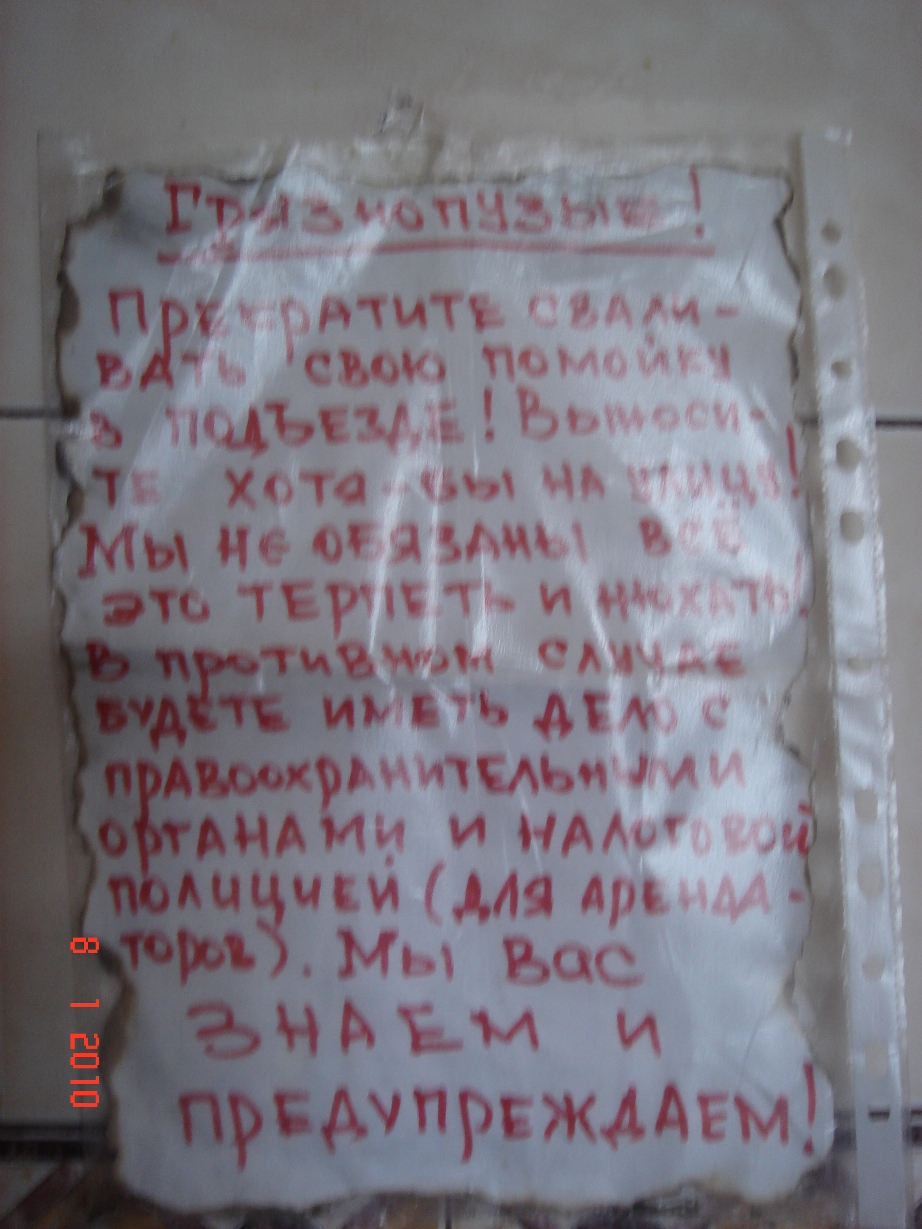 Грязнопузые!
Прекратите свали-
вать свою помойку
в подъезде! Выноси-
те хотя-бы на улицу!
Мы не обязаны всё
это терпеть и нюхать!
В противном случае
будете иметь дело с
правоохранительными
органами и налоговой
полицией (для аренда-
торов). Мы вас
знаем и
предупреждаем!
8 1 2010